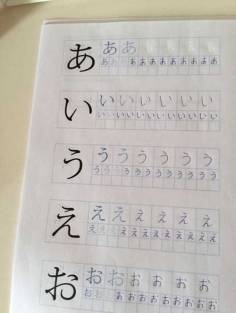 あ ああ
あああああああああああ
い いいいいいい
いいいいいいいいいいいい
う うううううう
うううううううううううう
え ええええええ
ええええええええええええ
お おおおおおお
おおおおおおおおおおお